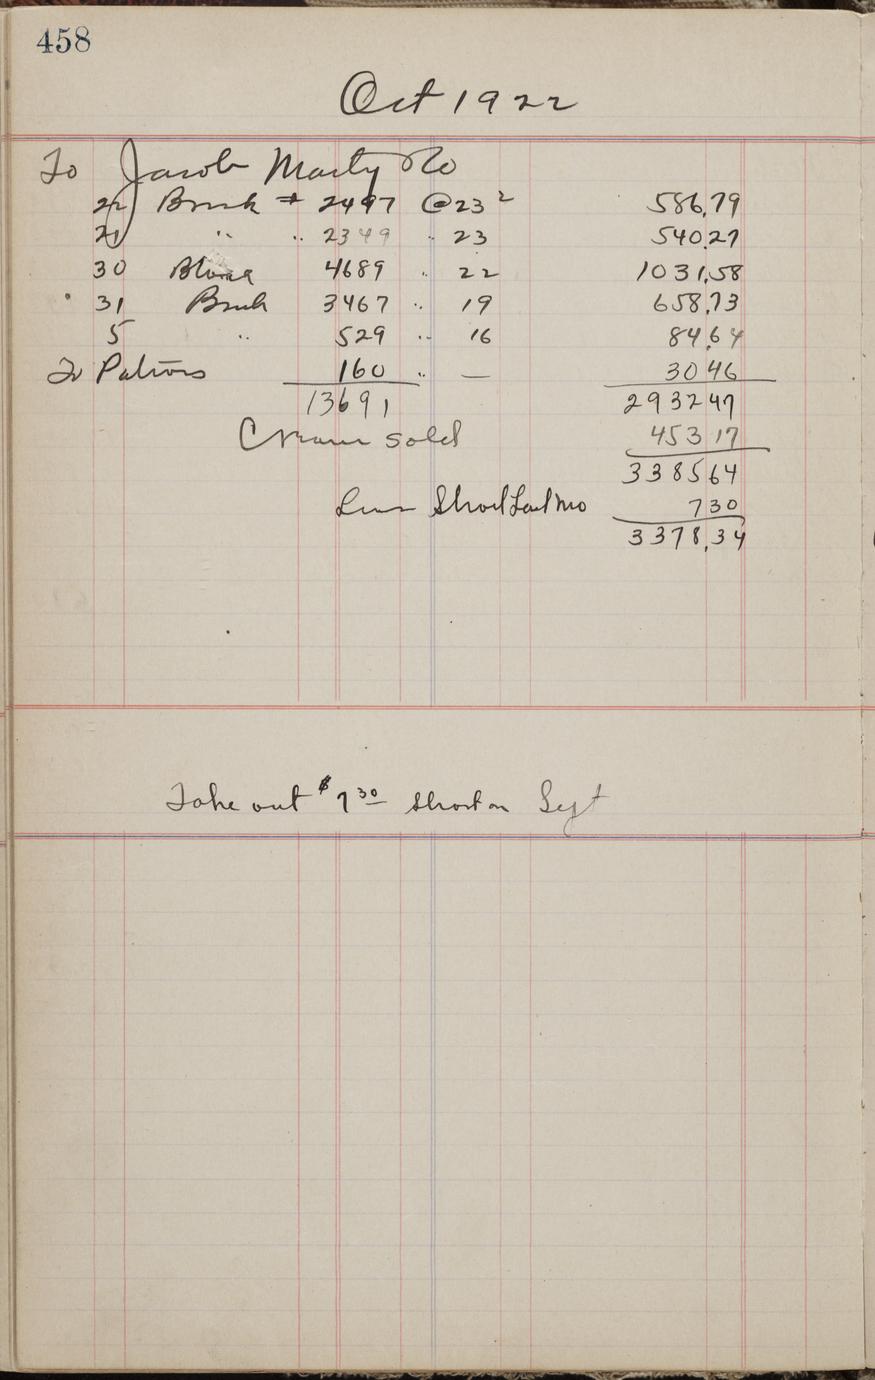 458
Oct 1922
To Jacob Marty Co
22 Brick # 2497 @ 23 2 586.79
21 " " 2349 " 23 540.27
30 Block 4689 " 22 1031.58
31 Brick 3467 " 19 658.73
5 " 529 " 16 84.64
To Patrons 160 " — 30 46
13691 2932 47
Cream sold 453 17
3385 64
Less Short Last Mo 7 30
3378.34
Take out $7 30 short on Sept